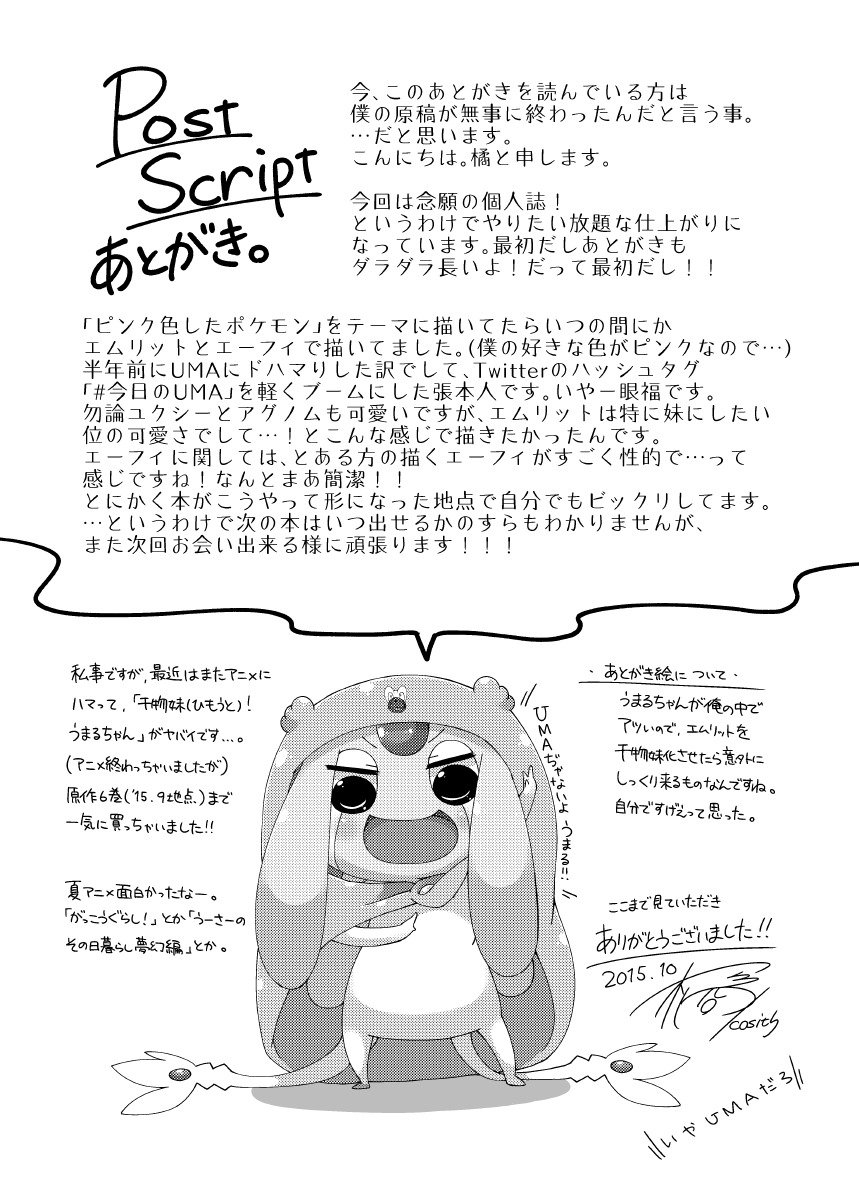 Post
Script
あとがき。
今、このあとがきを読んでいる方は
僕の原稿が無事に終わったんだと言う事。
…だと思います。
こんにちは。橘と申します。
今回は念願の個人誌！
というわけでやりたい放題な仕上がりに
なっています。最初だしあとがきも
ダラダラ長いよ！だって最初だし！！
「ピンク色したポケモン」をテーマに描いてたらいつの間にか
エムリットとエーフィで描いてました。(僕の好きな色がピンクなので…)
半年前にUMAにドハマりした訳でして、Twitterのハッシュタグ
「#今日のUMA」を軽くブームにした張本人です。いやー眼福です。
勿論ユクシーとアグノムも可愛いですが、エムリットは特に妹にしたい
位の可愛さでして…！とこんな感じで描きたかったんです。
エーフィに関しては、とある方の描くエーフィがすごく性的で…って
感じですね！なんとまあ簡潔！！
とにかく本がこうやって形になった地点で自分でもビックリしてます。
…というわけで次の本はいつ出せるかのすらもわかりませんが、
また次回お会い出来る様に頑張ります！！！
私事ですが,最近はまたアニメに
ハマって,「干物妹(ひもうと)！
うまるちゃん」がヤバイです...。
(アニメ終わっちゃいましたが)
原作6巻('15.9地点.)まで
一気に買っちゃいました!!
夏アニメ面白かったなー。
「がっこうぐらし！」とか「うーさーの
その日暮らし夢幻編」とか。
UMAぢゃないよ うまる!!
・あとがき絵について・
うまるちゃんが俺の中で
アツいので,エムリットを
干物妹化させたら意外に
しっくり来るものなんですね。
自分ですげえって思った。
ここまで見ていただき
ありがとうございました!!
2015.10
橘
cosith
いやUMAだろ